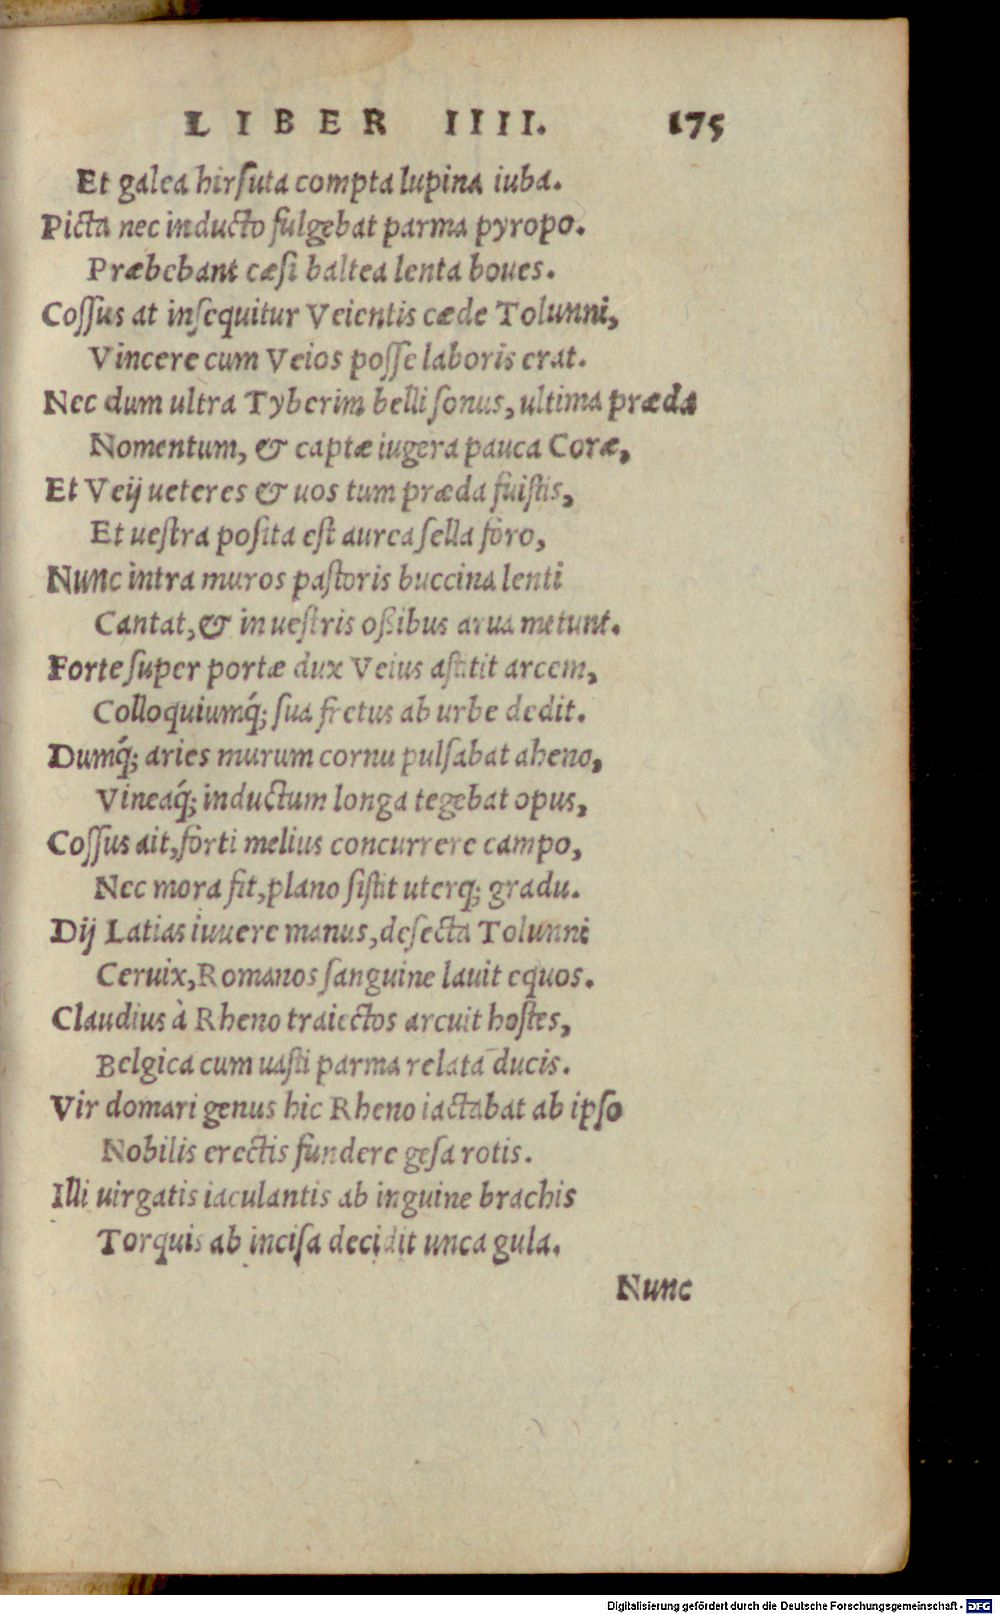 LIBER IIII. 175
Et galea hirſuta compta lupina iuba.
Picta nec inducto fulgebat parma pyropo.
Præbebant cæſi baltea lenta boues.
Coſſus at inſequitur Veientis cæde Tolunni,
Vincere cum Veios poſſe laboris erat.
Nec dum ultra Tyberim belli ſonus, ultima præda
Nomentum, & captæ iugera pauca Coræ,
Et Veij ueteres & uos tum præda fuiſtis,
Et ueſtra poſita eſt aurea ſella foro,
Nunc intra muros paſtoris buccina lenti
Cantat, & in ueſtris oßibus arua metunt.
Forte ſuper portæ dux Veius aſtitit arcem,
Colloquiumq́; ſua fretus ab urbe dedit.
Dumq́; aries murum cornu pulſabat aheno,
Vineaq́; inductum longa tegebat opus,
Coſſus ait, forti melius concurrere campo,
Nec mora fit, plano ſiſtit uterq; gradu.
Dij Latias iuuere manus, deſecta Tolunni
Ceruix, Romanos ſanguine lauit equos.
Claudius à Rheno traiectos arcuit hoſtes,
Belgica cum uaſti parma relata ducis.
Vir domari genus hic Rheno iactabat ab ipſo
Nobilis erectis fundere geſa rotis.
Illi uirgatis iaculantis ab inguine brachis
Torquis ab inciſa decidit unca gula.
Nunc
Digitalisierung gefördert durch die Deutsche Forschungsgemeinschaft - DFG